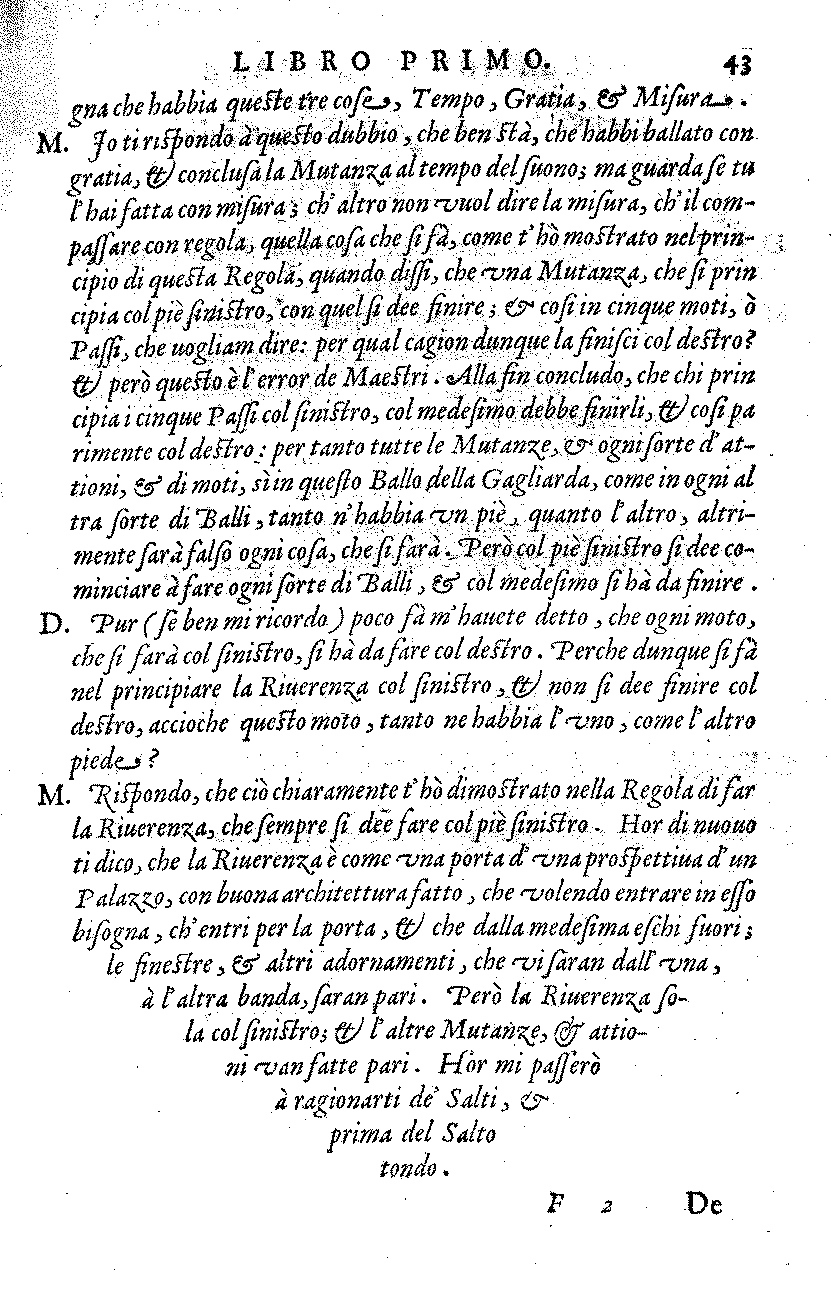 LIBRO PRIMO. 43
gna che habbia queste tre cose, Tempo, Gratia, & Misura.
M. Io ti rispondo à questo dubbio, che ben stà, che habbi ballato con
gratia, & conclusa la Mutanza al tempo del suono; ma guarda se tu
l'hai fatta con misura; ch'altro non vuol dire la misura, ch'il com-
passare con regola, quella cosa che si fà, come t'hò mostrato nel prin-
cipio di questa Regola, quando dissi, che vna Mutanza, che si prin
cipia col piè sinistro, con quel si dee finire; & cosi in cinque moti, ò
Passi, che uogliam dire: per qual cagion dunque la finisci col destro?
& però questo è l'error de Maestri. Alla fin concludo, che chi prin
cipia i cinque Passi col sinistro, col medesimo debbe finirli, & cosi pa
rimente col destro: per tanto tutte le Mutanze, & ogni sorte d'at-
tioni, & di moti, sì in questo Ballo della Gagliarda, come in ogni al
tra sorte di Balli, tanto n'habbia vn piè, quanto l'altro, altri-
mente sarà falso ogni cosa, che si farà. Però col piè sinistro si dee co-
minciare à fare ogni sorte di Balli, & col medesimo si hà da finire.
D. Pur (se ben mi ricordo) poco fà m'hauete detto, che ogni moto,
che si farà col sinistro, si hà da fare col destro. Perche dunque si fà
nel principiare la Riuerenza col sinistro, & non si dee finire col
destro, accioche questo moto, tanto ne habbia l'vno, come l'altro
piede?
M. Rispondo, che ciò chiaramente t'hò dimostrato nella Regola di far
la Riuerenza, che sempre si dee fare col piè sinistro. Hor di nuouo
ti dico, che la Riuerenza è come vna porta d'vna prospettiua d'un
Palazzo, con buona architettura fatto, che volendo entrare in esso
bisogna, ch'entri per la porta, & che dalla medesima eschi fuori;
le finestre, & altri adornamenti, che vi saran dall'vna,
à l'altra banda, saran pari. Però la Riuerenza so-
la col sinistro; & l'altre Mutanze, & attio-
ni van fatte pari. Hor mi passerò
à ragionarti de' Salti, &
prima del Salto
tondo.
F 2 De